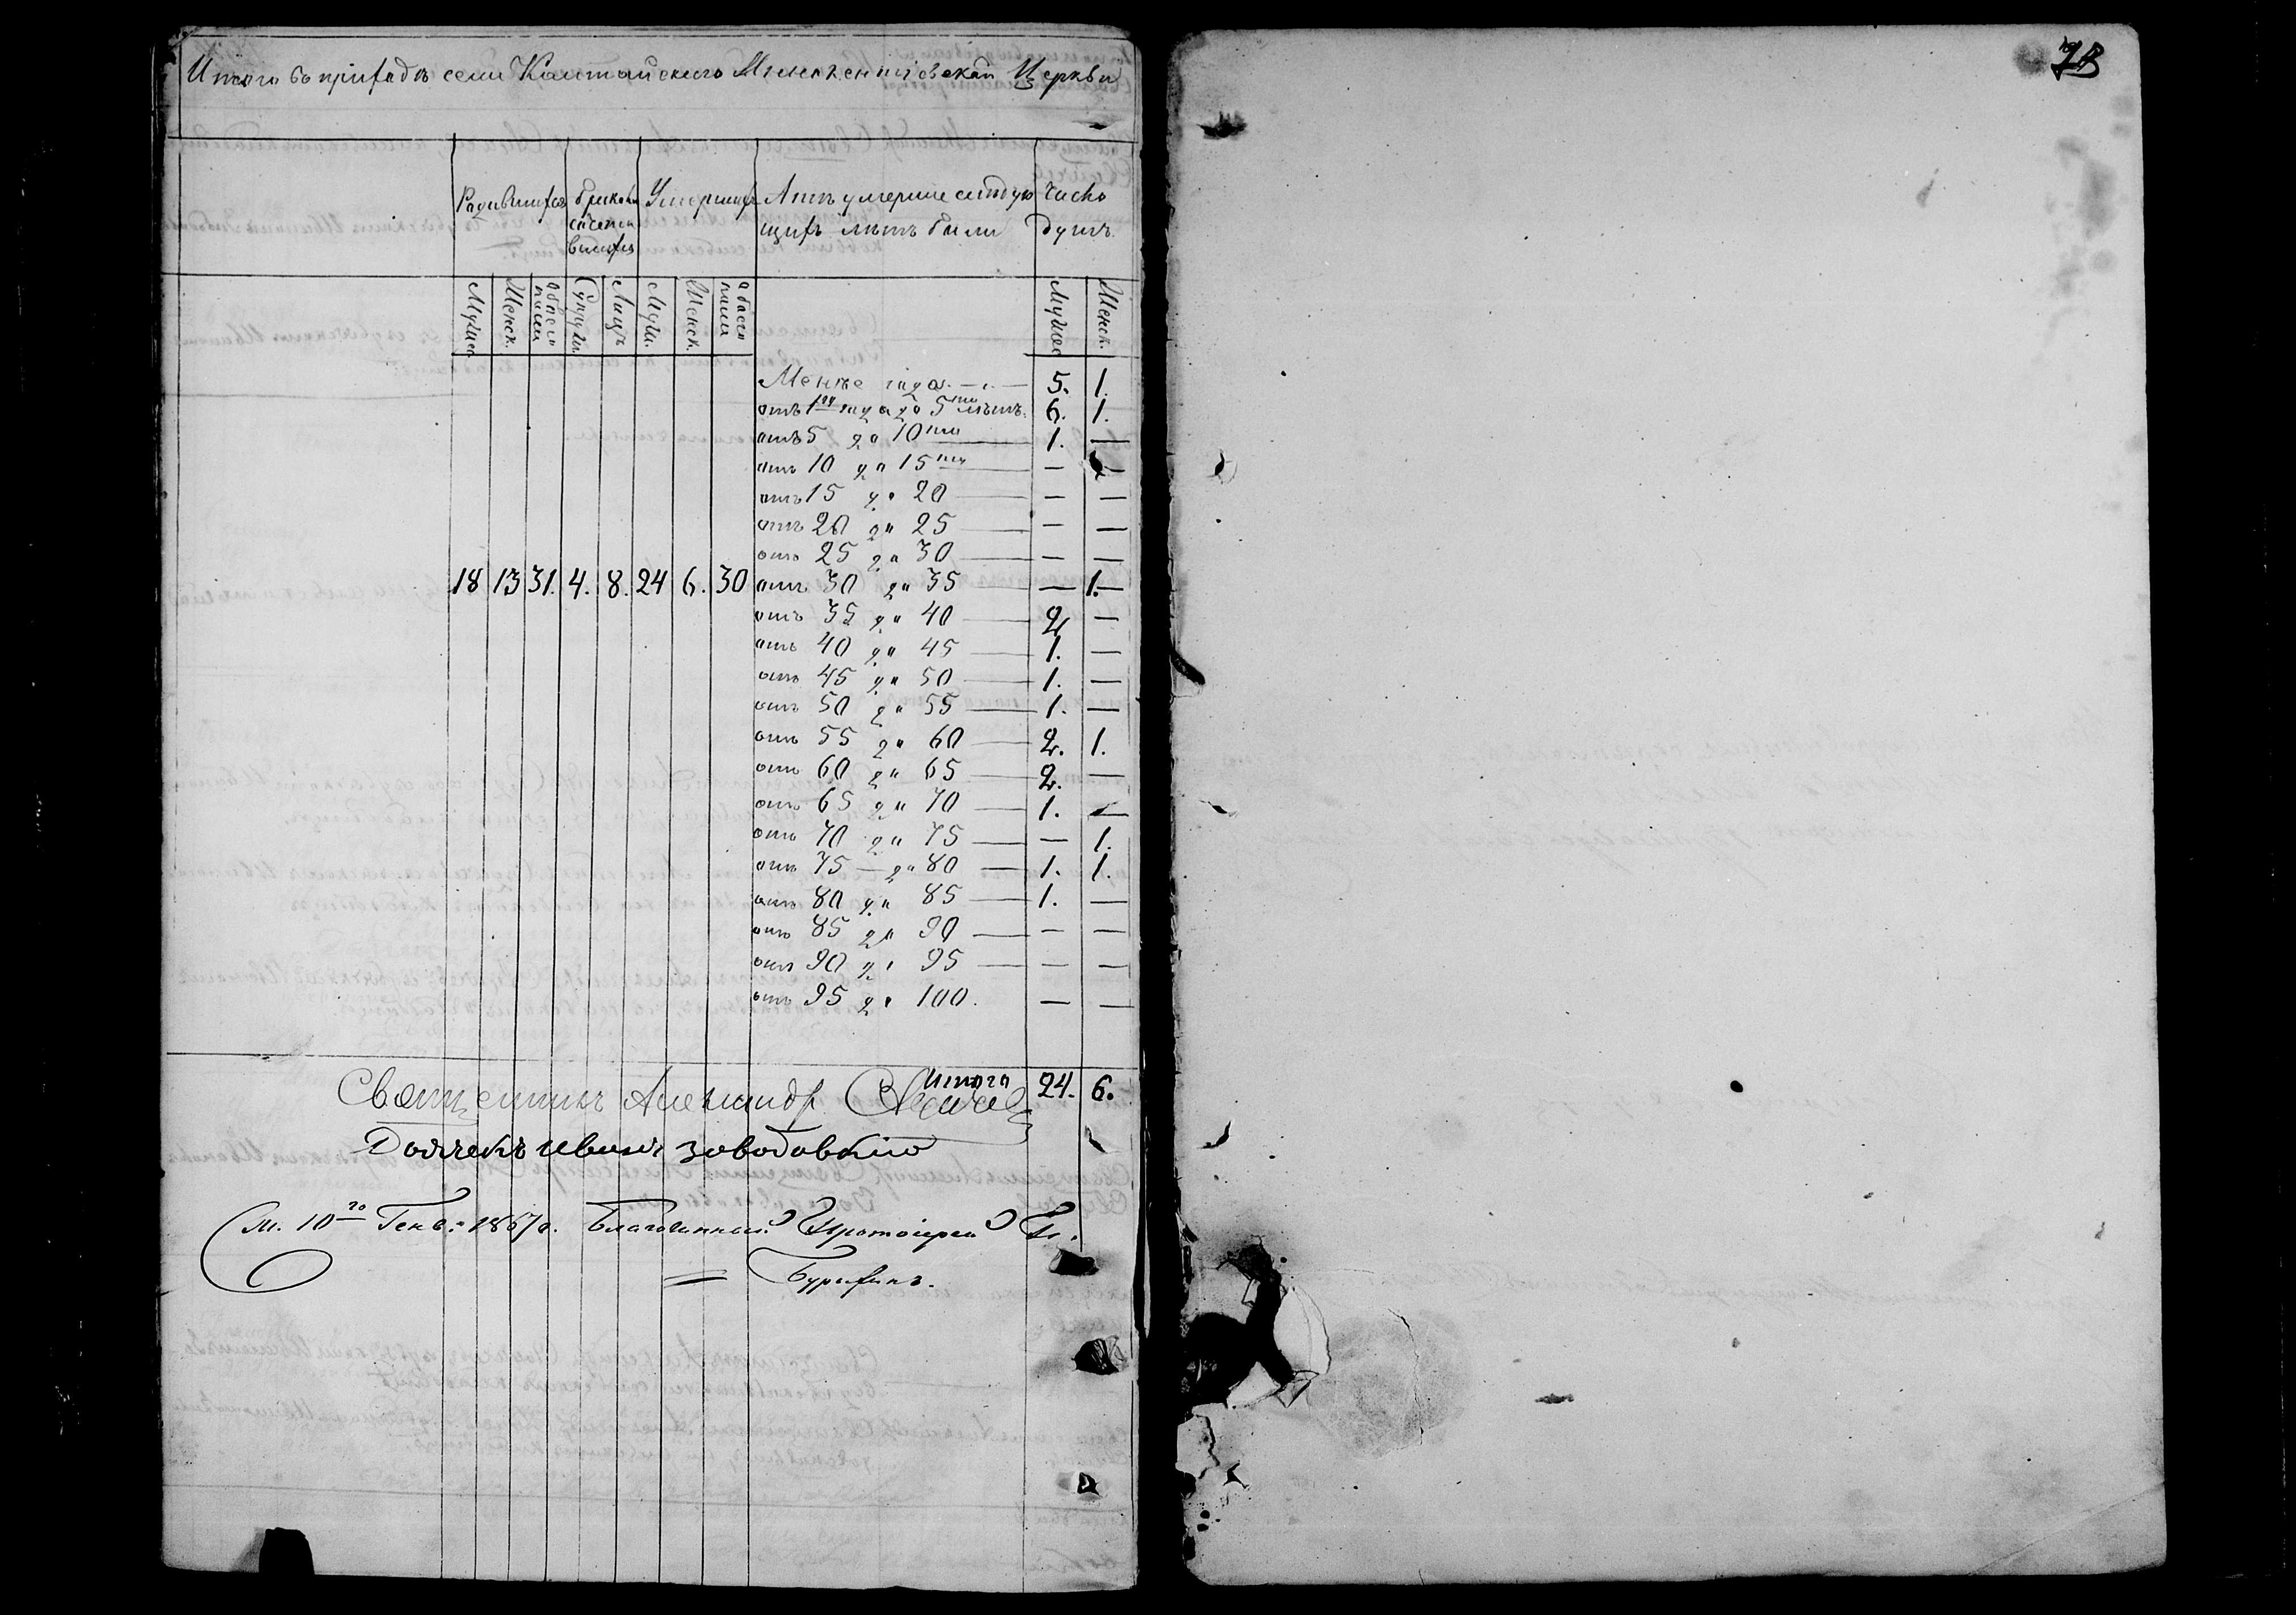 Итого въ приходѣ села Каитанскаго Иннокентіевской Церкви
73
Родившихся
бракомъ
сочетав
вшихся
Умершихъ
Лѣтъ умершіе слѣдую
щихъ лѣтъ были
Число
душъ.
Мужес
Женск.
обоего
пола
Супруж.
Лицъ
Муж.
Женск.
обоего
пола
Мужес
Женск.
Менѣе года. — 5. 1.
отъ 1го года до 5ти лѣтъ. 6. 1.
отъ 5 до 10ти — 1. —
отъ 10 до 15ти — — —
отъ 15 до 20 — — —
отъ 20 до 25 — — —
отъ 25 до 30 — — —
18 13 31. 4. 8. 24 6. 30 отъ 30 до 35 — 1.
отъ 35 до 40 — 2 —
отъ 40 до 45 — 1. —
отъ 45 до 50 — 1. —
отъ 50 до 55 — 1. —
отъ 55 до 60 — 2. 1.
отъ 60 до 65 — 2. —
отъ 65 до 70 — 1. —
отъ 70 до 75 — — 1.
отъ 75 — до 80 — 1. 1.
отъ 80 до 85 — 1. —
отъ 85 до 90 — — —
отъ 90 до 95 — — —
отъ 95 до 100. — —
Итого 24. 6.
Священникъ Александр
Дьячекъ Иванъ Заводовскій
См. 10го Генв: 1867 г. Благочинный Протоіерей